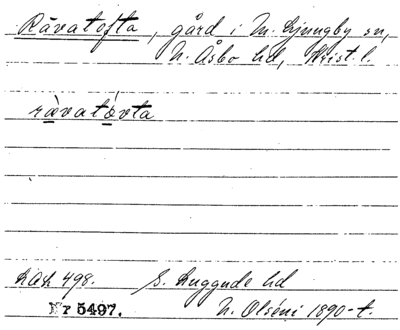 Råvatofta, gård i N. Ljungby sn,
N. Åsbo hd, Krist. l.
rå̀vatǻvta
LAL 498. S. Luggude hd
Nr 5497. N. Olséni 1890-t.